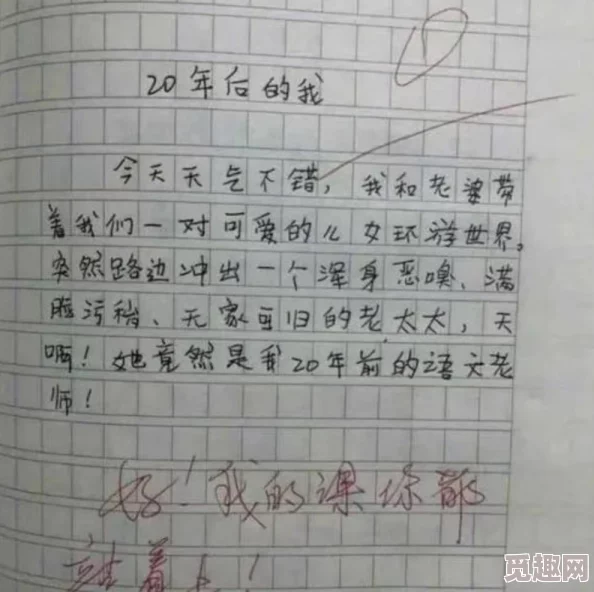 20年后的我
今天天气不错，我和老婆带
着我们一对可爱的儿女环游世界。
突然路边冲出一个浑身恶嗅、满
脸污秽、无家可归的老太太，天
啊！她竟然是我20年前的语文老
师！
好！我的课你都
站着上！
觅趣网